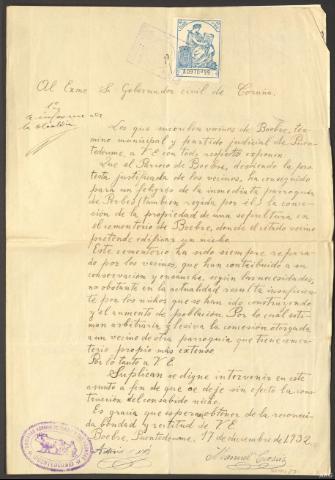 Al Exmo Sr Gobernador civil de Coruña.
1º
a informe de
la alcaldía
Los que suscriben vecinos de Boebre, tér-
mino municipal y partido judicial de Puen-
tedeume, a V E con todo respeto exponen
Que el Párroco de Boebre, desoyendo la pro-
testa justificada de los vecinos, ha conseguido
para un feligres de la inmediata parroquia
de Perbes (tambien regida por el) la conce-
sión de la propiedad de una sepultura en
el cementerio de Boebre, donde el citado vecino
pretende edificar un nicho.
Este cementerio ha sido siempre repara-
do por los vecinos, que han contribuido a su
conservación y ensanche, según las necesidades,
no obstante en la actualidad resulta insuficien-
te por los nichos que se han ido construyendo
y el aumento de población. Por lo cual esti-
man arbitraria y lesiva la concesión otorgada
a un vecino de otra parroquia que tiene cemen-
terio propio más extenso
Por lo tanto a V E
Suplican se digne intervenir en este
asunto a fin de que se deje sin efecto la cons-
trucción del consabido nicho.
Es gracia que esperan obtener de la reconoci-
da bondad y rectitud de V E
Boebre, Puentedeume, 17 de diciembre de 1932
Manuel